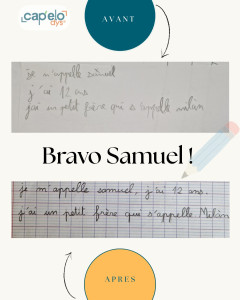 capelo
dys
AVANT
je m'appelle samuel
j'ai 12 ans
j'ai un petit frère qui s'appelle malan
Bravo Samuel !
je m'appelle samuel, j'ai 12 ans.
j'ai un petit frère qui s'appelle Malân
APRES